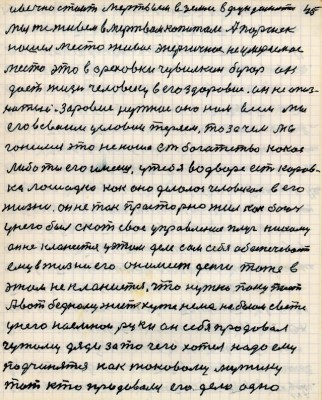 и вечно стоит мертвым в земли в фундаменте 45
мы живем в мертвом капитале А Паршек
нашел место живое энергичное неумираемое
место это в ореховки чувилкин бугор он
дает жизнь человеку в его здоровие. он не отка-
Здоровие нужное оно нам всем мы
его в своими условии теряем, то за чем мы
гонимся это не наше есть богатство какое
либо ты его имееш, у тебя во дворе есть коров-
ка лошадка как оно делалось человеком в его
жизни. он не так просторно жил как богач
у него был скот свое управление плуг никому
он не кланяется у этом деле сам себя обеспечивает
ему в жизни его он имеет деньги тоже в
этом не кланяется, что нужно покупает
А вот бедному жить хуже нема на белом свете
у него наемные руки он себя продовал
чужому дяди за то чего хотел надо ему
подчинятся как таковому мужику
тот кто продовал его дело одно